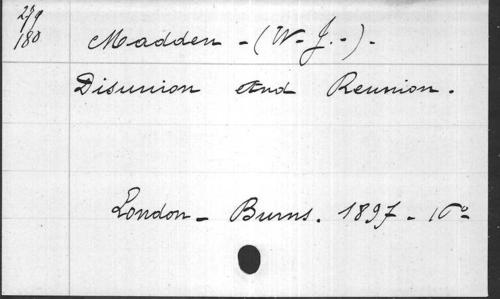 279
180
Madden - (W. J. -) -
Disunion and Reunion.
London - Burns. 1897 - 16°